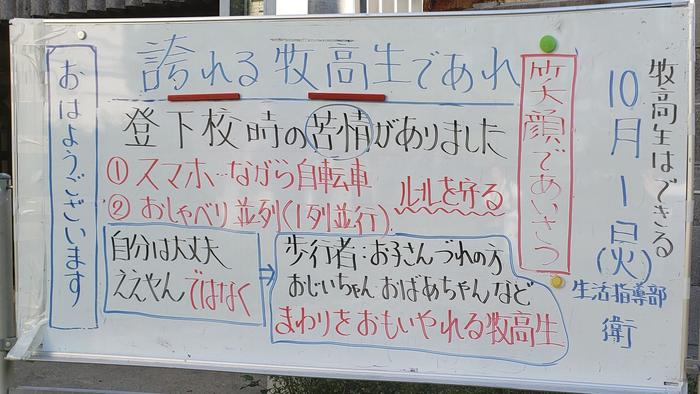 牧高生はできる
10月1日(火)
生活指導部
衛
笑顔であいさつ
誇れる牧高生であれ
登下校時の苦情がありました
① スマホ…ながら自転車
② おしゃべり並列(1列並行).
ルールを守る
自分は大丈夫
ええやんではなく
⇒
歩行者:お子さんづれの方
おじいちゃん・おばあちゃんなど
まわりをおもいやれる牧高生
おはようございます